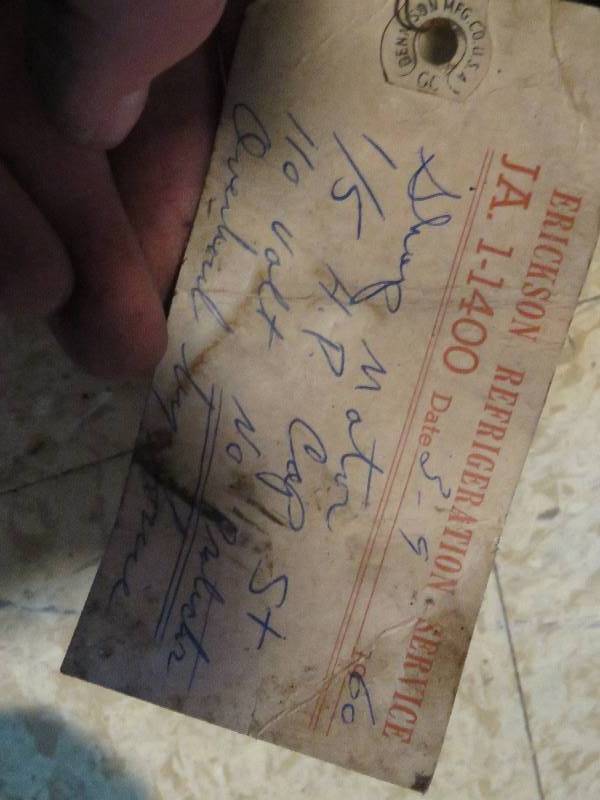 DENNISON MFG. CO. U.S.A.
ERICKSON REFRIGERATION SERVICE
JA. 1-1400 Date 5-9 1960
Shop Motor
1/5 H.P. Cap St
110 Volt No
Overhaul by